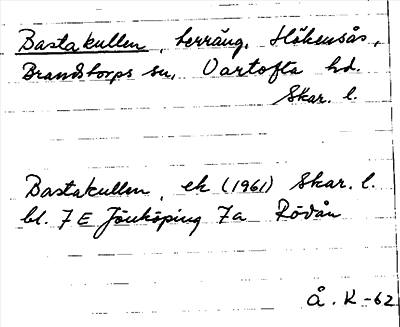 Bastakullen, terräng, Hökensås,
Brandstorps sn, Vartofta hd.
Skar. l.
Bastakullen, ek (1961) Skar. l.
bl. 7 E Jönköping 7a Rödån
Å. K-62